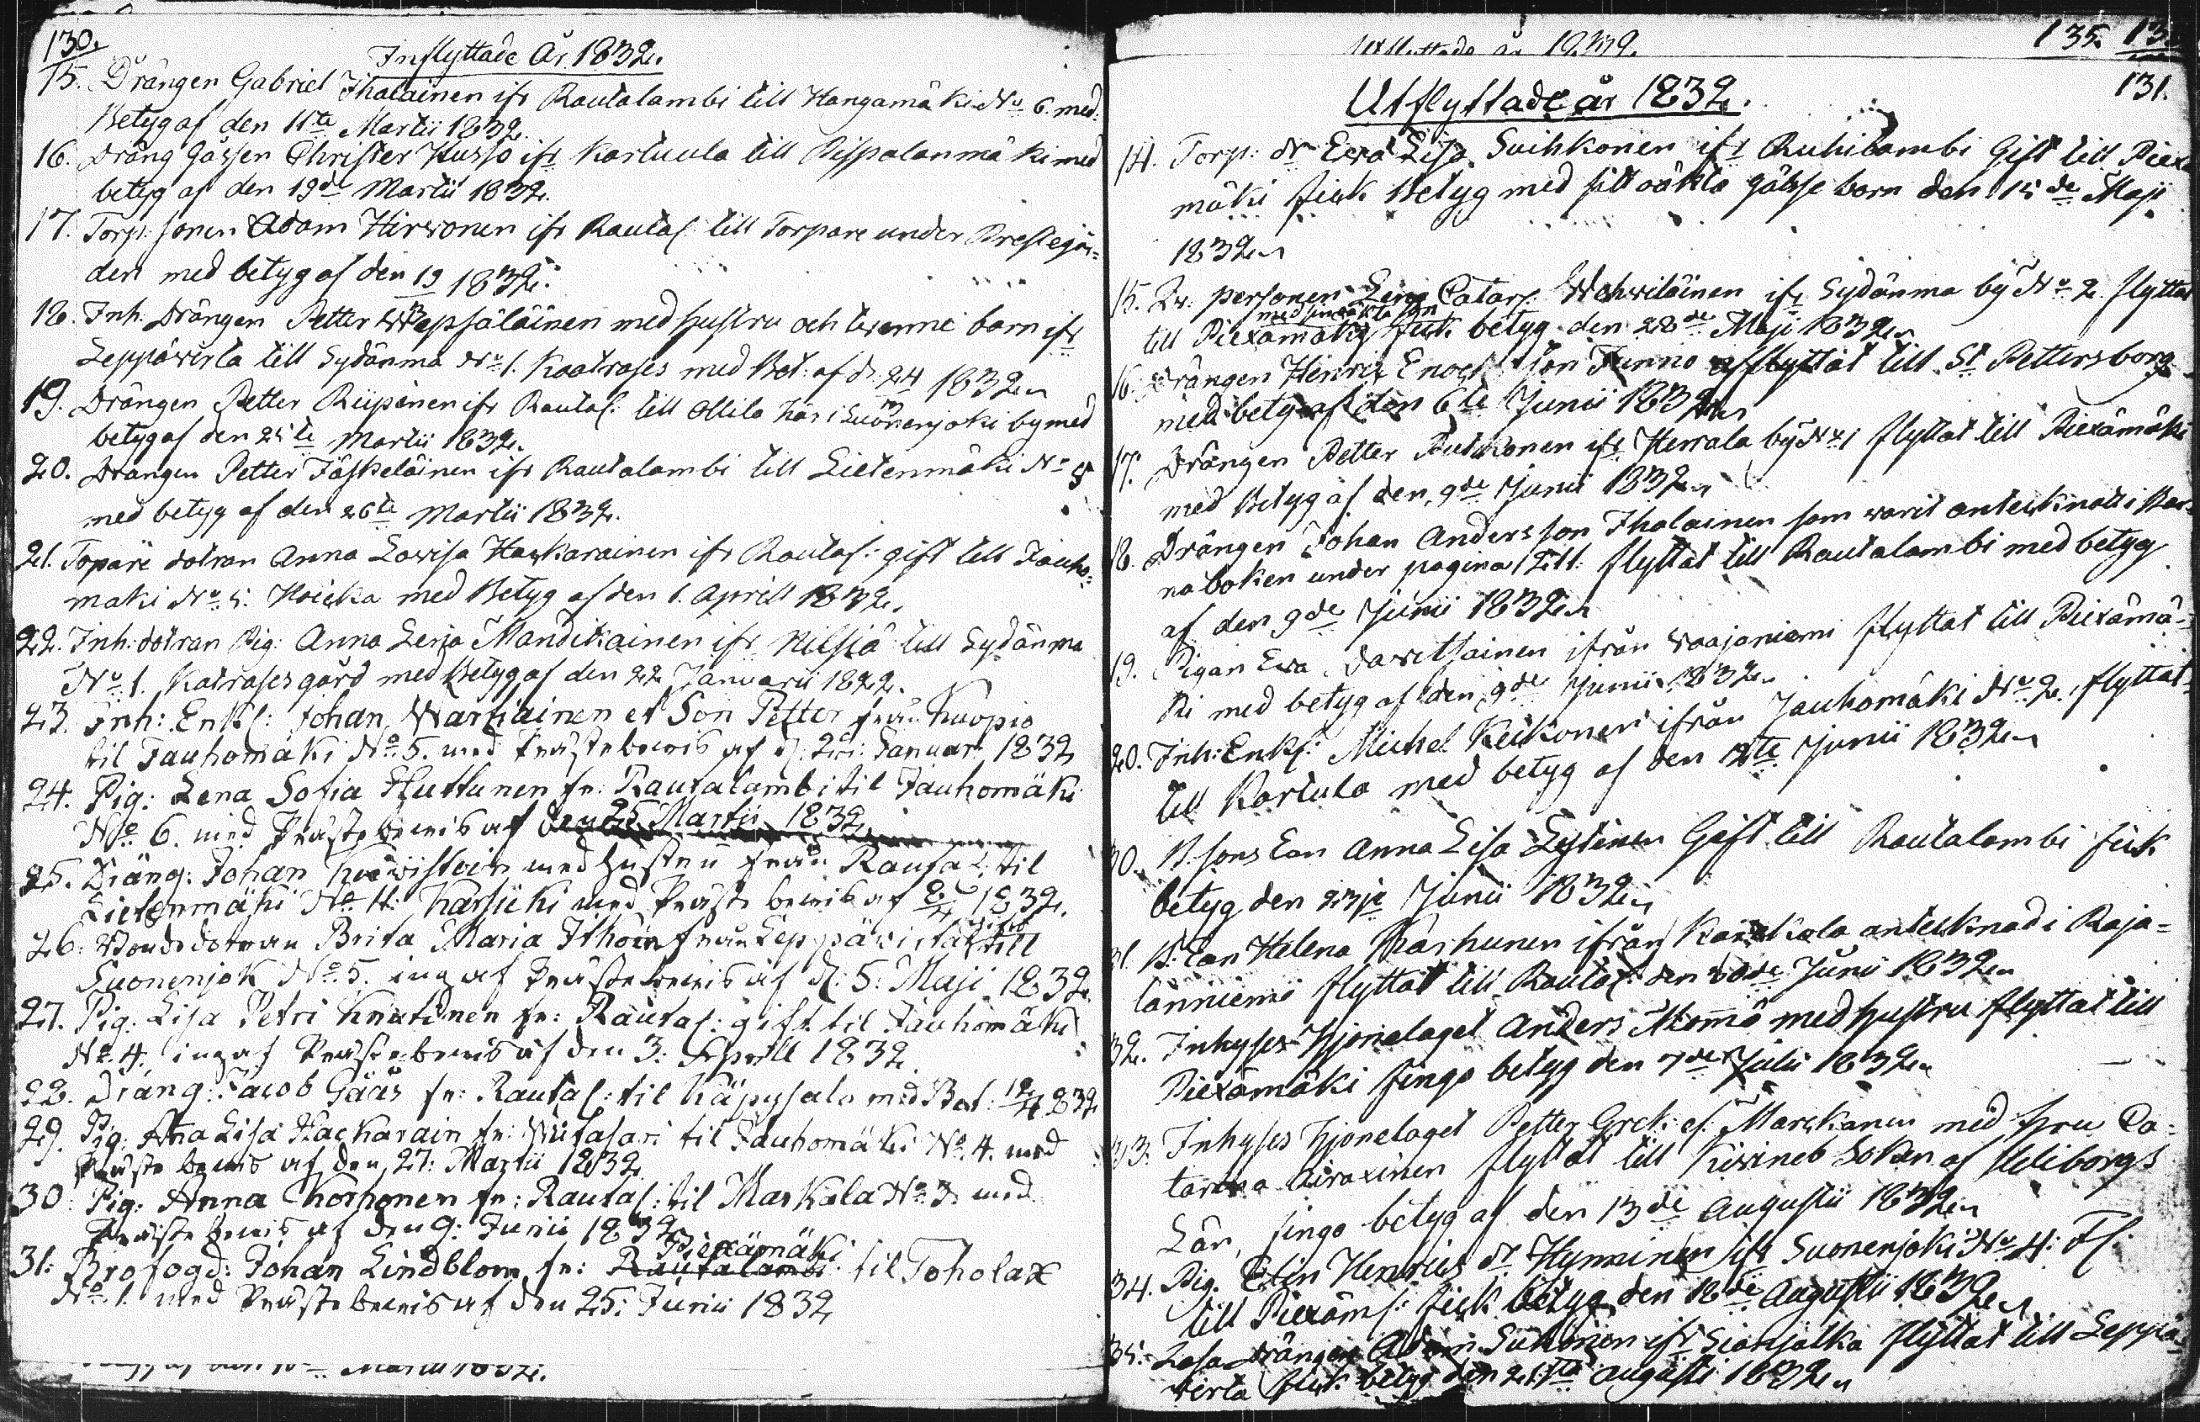 130.
Inflyttade År 1832.
15. Drängen Gabriel Ihalainen ifr Rautalambi till Hangamäki No 6. med
Betyg af den 11te Martii 1832.
16. Dräng gossen Christer Husso ifr Karttula till Pispalanmäki med
betyg af den 19de Martii 1832.
17. Torp: sonen Adam Hirvonen ifr Rautal: till Torpare under Prestegår=
den med betyg af den 19/3 1832.
18. Inh. Drängen Petter Wepsäläinen med hustru och tvenne barn ifr
Leppävirta till Sydänma No 1. Koatrases med Bet: af d: 24/3 1832.
19. Drängen Petter Riipinen ifr Rautal: till Ollila här i Suonenjoki by med
betyg af den 25te Martii 1832.
20. Drängen Petter Jäskeläinen ifr Rautalambi till Lietenmäki No 5
med betyg af den 26te Martii 1832.
21. Topare dotran Anna Lovisa Hackarainen ifr Rautal: gift till Jauho=
mäki No 5. med Betyg af den 1. Aprill 1832.
22. Inh: dotran Pig: Anna Lena Manditainen ifr Nilsiä till Sydänma
No 1. Katrases gård med Betyg af den 22 Januarii 1822.
23. Inh: Enkl: Johan Wartiainen et Son Petter från Kuopio
til Jauhomäki No 5. med Prästebewis af d: 25: Januar 1832
24. Pig: Lena Sofia Huttunen fr: Rautalambi til Jauhomäki
No 6. med Prästebewis af den 25 Martii 1832
25. Dräng: Johan med hustru från Rautal: til
Lietenmäki No 4: Karsicki med Präste bewis af 8/4 1832.
26. Bondedotran Brita Maria Ithoin från Leppävirta gift till
Suonenjok No 5. ing af Prästebewis af d: 5: Maji 1832.
27. Pig: Lisa Petri Knutinen fr: Rautal: gift til Jauhomäki
No 4. ing af Prästebewis af den 3: Aprill 1832.
28. Dräng: Jacob Gäås fr: Rautal: til Käpysalo med Bet: 12/4 832
29. Pig: Anna Lisa Hackarain fr: Wiitasari til Jauhomäki No 4. med
Präste bewis af den 27: Martii 1832
30. Pig: Anna Korhonen fr: Rautal: til Markala No 3. med
Präste bewis af den 9: Junii 1832
31: Brofogd: Johan Lindblom fr: Rautalambi Piexämäki til Toholax
No 1. med Prästebewis af den 25: Junii 1832
Martii 1832.
Utflyttade år 1832.
135
131.
Utflyttade år 1832.
14. Torp: dr Ewa Lisa Suihkonen ifr Ruhilambi Gift till Piexä
mäki fick Betyg med sitt oäkta gosse barn den 15de Maji
1832.
15. Qv: personen Lena Catar: Wehviläinen ifr Sydänma by No 2. flyttat
till Piexämäki med sin oäkta son fick betyg den 28de Maji 1832.
16. Drängen Henrik Enoch: son Junno afflyttat till St Pettersborg
med betyg af den 6te Junii 1832.
17. Drängen Petter Putkonen ifr Herrala by No 1 flyttat till Piexämäki
med Betyg af den 9de Junii 1832.
18. Drängen Johan Andersson Ihalainen som varit antecknad i Bar=
na boken under pagina flyttat till Rautalambi med betyg
af den 9de Junii 1832.
19. Pigan Ewa Dawitsainen ifrån Waajaniemi flyttat till Piexämä=
ki med betyg af den 9de Junii 1832.
20. Inh: Enkl: Michel Keikonen ifrån Jauhomäki No 2. flyttat
till Kartula med betyg af den 12te Junii 1832.
30. B: sons Enn Anna Lisa Lytinen Gift till Rautalambi fick
betyg den 23je Junii 1832.
31. B: Enn Helena Karhunen ifrån Kärkkala antecknad i Raja=
lanniemi flyttat till Rautal: den 30de Juni 1832.
32. Inhyses Hjonelaget Anders Mömmö med hustru flyttat till
Piexämäki fingo betyg den 7de Julii 1832.
33. Inhyses hjonelaget Petter Grels: s: Marckanen med hru Ca=
tarina Airaxinen flyttat till Kivineb Sokn af Wiborgs
Län, fingo betyg af den 13de Augustii 1832.
34. Pig. Elin Henrics dr Hyminen ifr Suonenjoki No 4: Fl:
till Piexäm: fick betyg den 18de Augustii 1832.
35. Lösa Drängen Adam Suhonen ifr Sianjalka flyttat till Leppä=
virta fick betyg den 21sta augusti 1832.